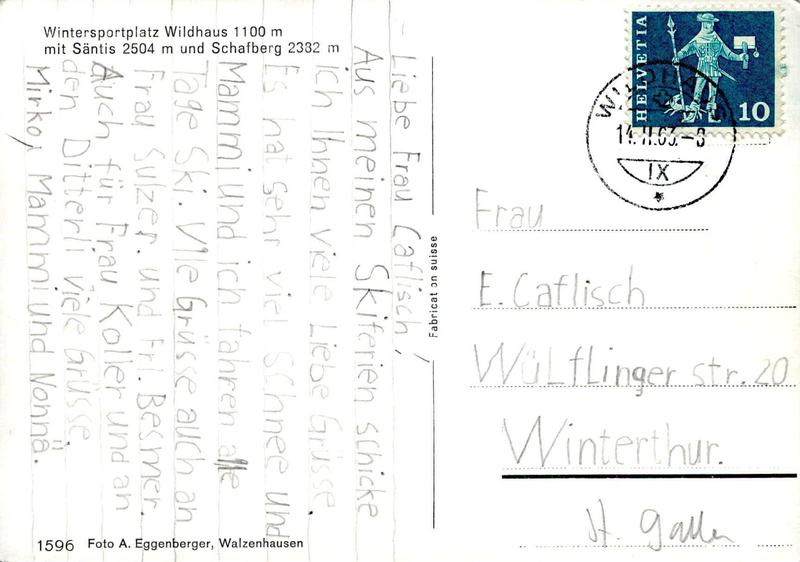 Wintersportplatz Wildhaus 1100 m
mit Säntis 2504 m und Schafberg 2382 m
Liebe Frau Caflisch,
Aus meinen Skiferien schicke
ich Ihnen viele Liebe Grüsse
Es hat sehr viel Schnee und
Mammi und ich fahren alle
Tage Ski. Vile Grüsse auch an
Frau Sulzer. und Frl. Besmer.
Auch für Frau Koller und an
den Ditterli viele Grüsse.
Mirko, Mammi und Nonna.
1596 Foto A. Eggenberger, Walzenhausen
Fabrication suisse
HELVETIA
10
14.II.63.-8
IX
Frau
E. Caflisch
Wülflinger str. 20
Winterthur.
St. Gallen